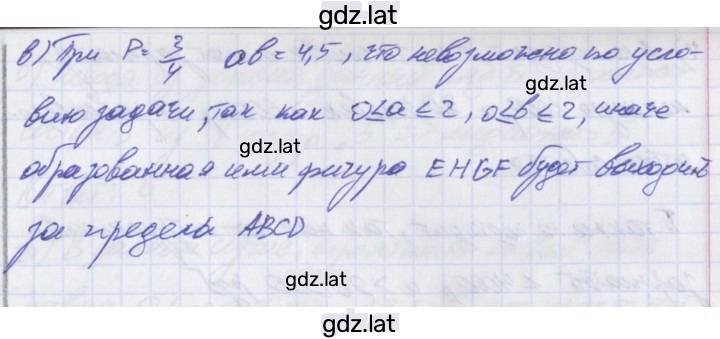 gdz.lat
в) При P = 3/4 ab = 4,5, что невозможно по усло-
вию задачи, так как 0 ≤ a ≤ 2, 0 ≤ b ≤ 2, иначе
gdz.lat
образованная ими фигура EHGF будет выходить
за пределы ABCD
gdz.lat
gdz.lat